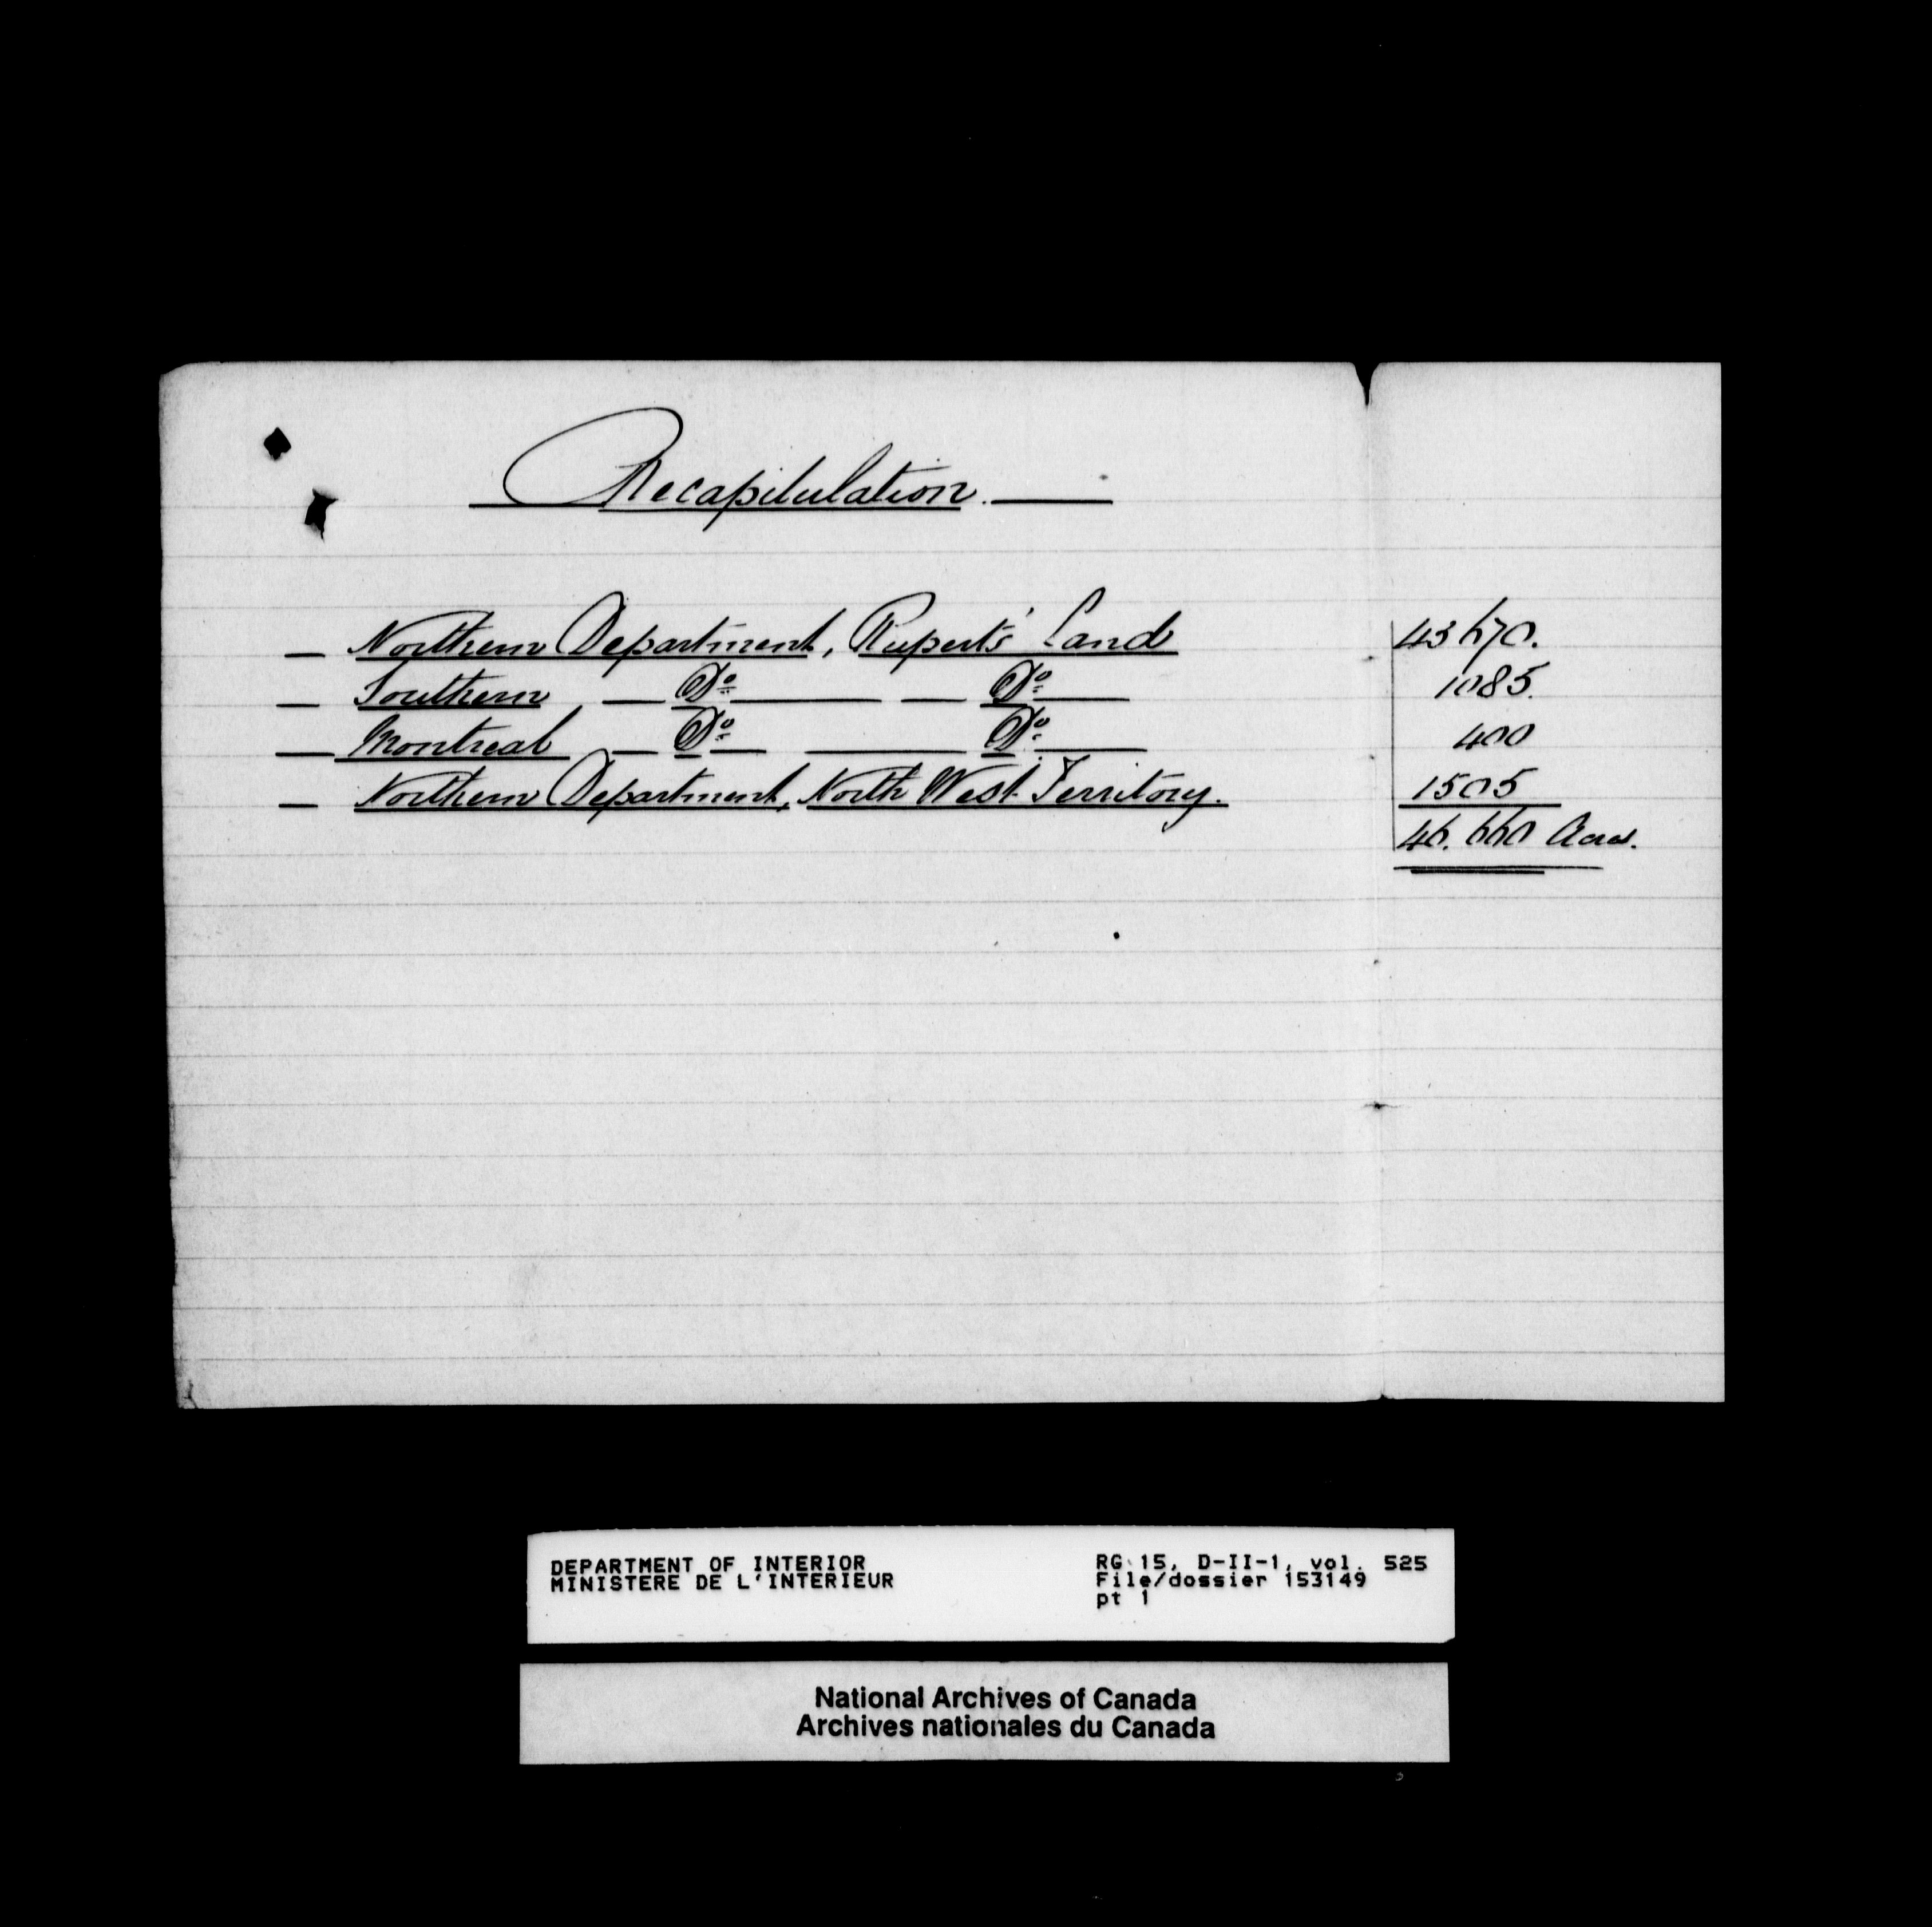 Recapitulation.
— Northern Department, Rupert's Land 43670.
— Southern — Do — — Do — 1085.
— Montreal — Do — — Do — 400
— Northern Department, North West Territory. 1505
46.660 Acres.
DEPARTMENT OF INTERIOR
MINISTERE DE L'INTERIEUR
RG 15, D-II-1, vol. 525
File/dossier 153149
pt 1
National Archives of Canada
Archives nationales du Canada